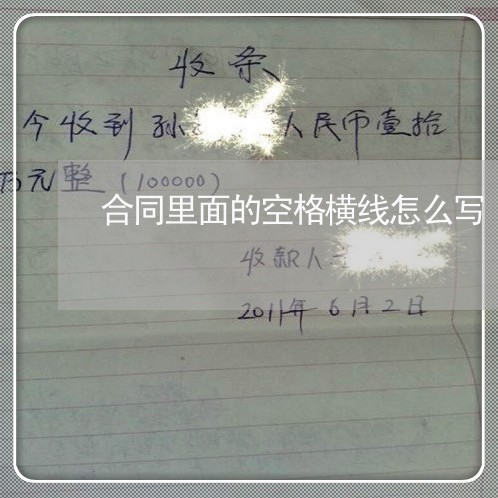 收条
今收到孙 人民币壹拾
万元整（100000）
合同里面的空格横线怎么写
收款人
2011年6月2日